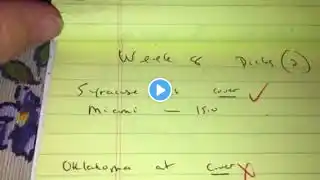 Week 8 Picks (2)
Syracuse cover
Miami —
Oklahoma at cover